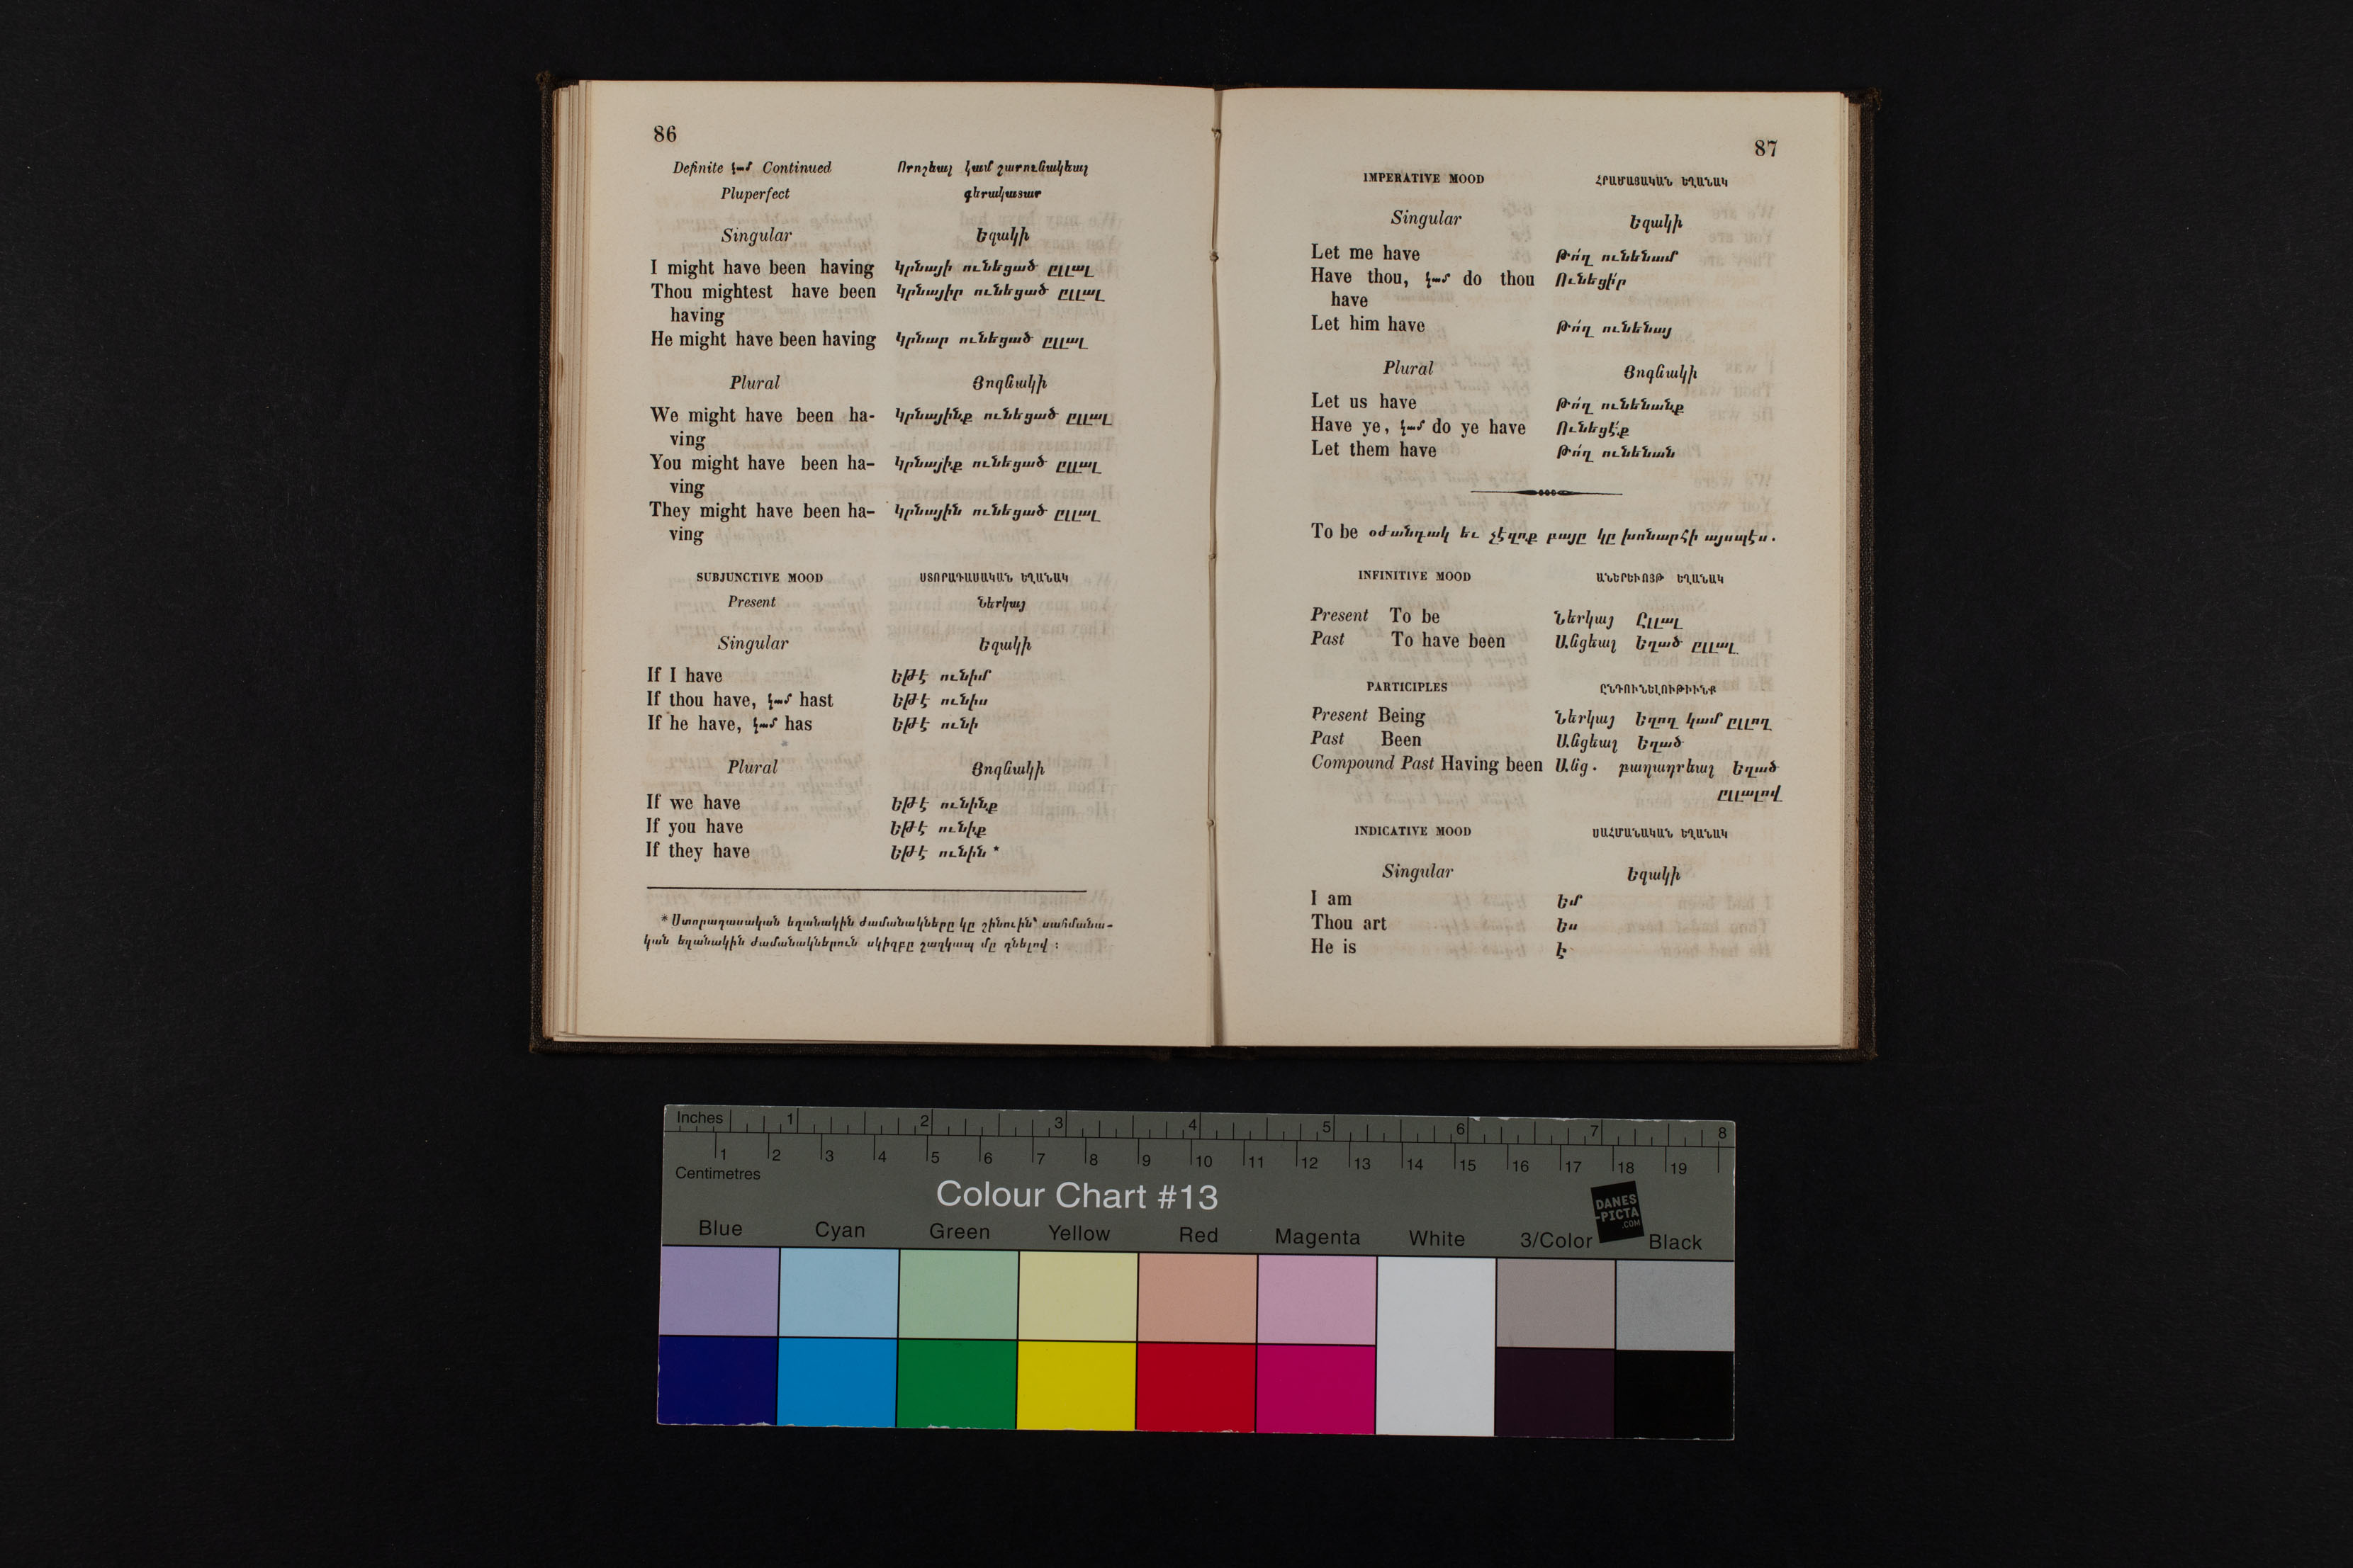 86
Definite կամ Continued Որոշեալ կամ շարունակեալ
Pluperfect գերակատար
Singular Եզակի
I might have been having Կրնայի ունեցած ըլլալ
Thou mightest have been Կրնայիր ունեցած ըլլալ
having
He might have been having Կրնար ունեցած ըլլալ
Plural Յոգնակի
We might have been ha- Կրնայինք ունեցած ըլլալ
ving
You might have been ha- Կրնայիք ունեցած ըլլալ
ving
They might have been ha- Կրնային ունեցած ըլլալ
ving
SUBJUNCTIVE MOOD ՍՏՈՐԱԴԱՍԱԿԱՆ ԵՂԱՆԱԿ
Present Ներկայ
Singular Եզակի
If I have Եթէ ունիմ
If thou have, կամ hast Եթէ ունիս
If he have, կամ has Եթէ ունի
Plural Յոգնակի
If we have Եթէ ունինք
If you have Եթէ ունիք
If they have Եթէ ունին *
* Ստորադասական եղանակին ժամանակները կը շինուին՝ սահմանա-
կան եղանակին ժամանակներուն սկիզբը շաղկապ մը դնելով ։
87
IMPERATIVE MOOD ՀՐԱՄԱՅԱԿԱՆ ԵՂԱՆԱԿ
Singular Եզակի
Let me have Թո՛ղ ունենամ
Have thou, կամ do thou Ունեցի՛ր
have
Let him have Թո՛ղ ունենայ
Plural Յոգնակի
Let us have Թո՛ղ ունենանք
Have ye, կամ do ye have Ունեցէ՛ք
Let them have Թո՛ղ ունենան
To be օժանդակ եւ չէզոք բայը կը խոնարհի այսպէս.
INFINITIVE MOOD ԱՆԵՐԵՒՈՅԹ ԵՂԱՆԱԿ
Present To be Ներկայ Ըլլալ
Past To have been Անցեալ Եղած ըլլալ
PARTICIPLES ԸՆԴՈՒՆԵԼՈՒԹԻՒՆՔ
Present Being Ներկայ Եղող կամ ըլլող
Past Been Անցեալ Եղած
Compound Past Having been Անց. բաղադրեալ Եղած
ըլլալով
INDICATIVE MOOD ՍԱՀՄԱՆԱԿԱՆ ԵՂԱՆԱԿ
Singular Եզակի
I am Եմ
Thou art Ես
He is է
Inches 1 2 3 4 5 6 7 8
1 2 3 4 5 6 7 8 9 10 11 12 13 14 15 16 17 18 19
Centimetres
Colour Chart #13
DANES
-PICTA
.COM
Blue Cyan Green Yellow Red Magenta White 3/Color Black